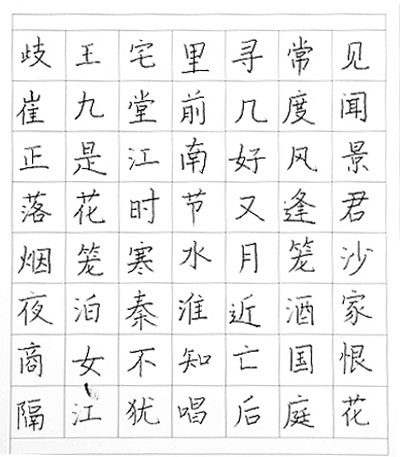 歧王宅里寻常见
崔九堂前几度闻
正是江南好风景
落花时节又逢君
烟笼寒水月笼沙
夜泊秦淮近酒家
商女不知亡国恨
隔江犹唱后庭花